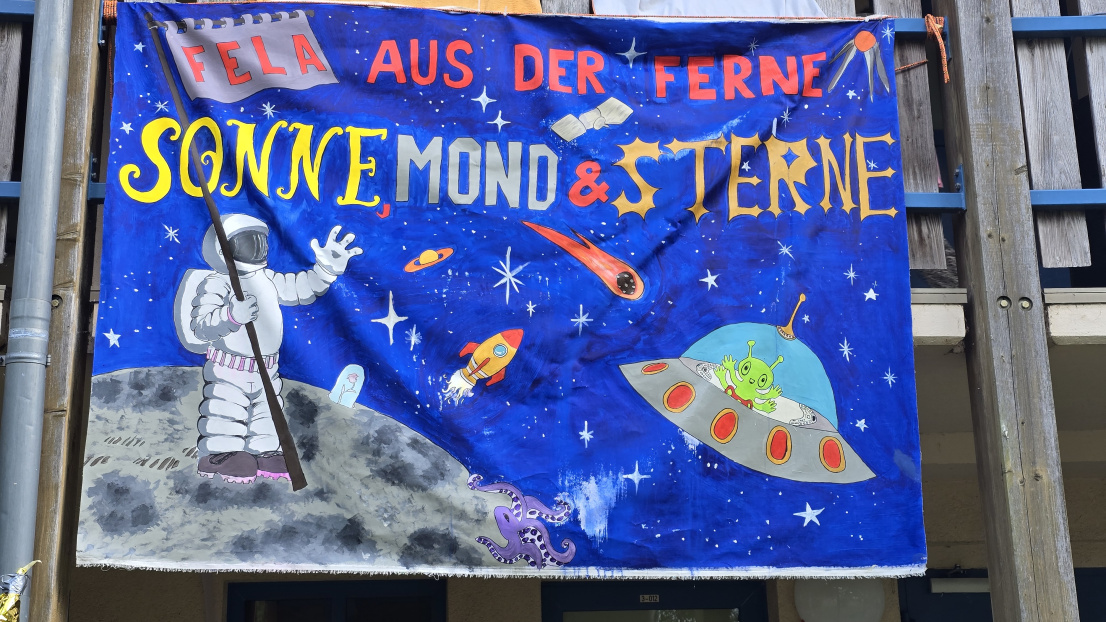 FELA AUS DER FERNE
SONNE, MOND & STERNE